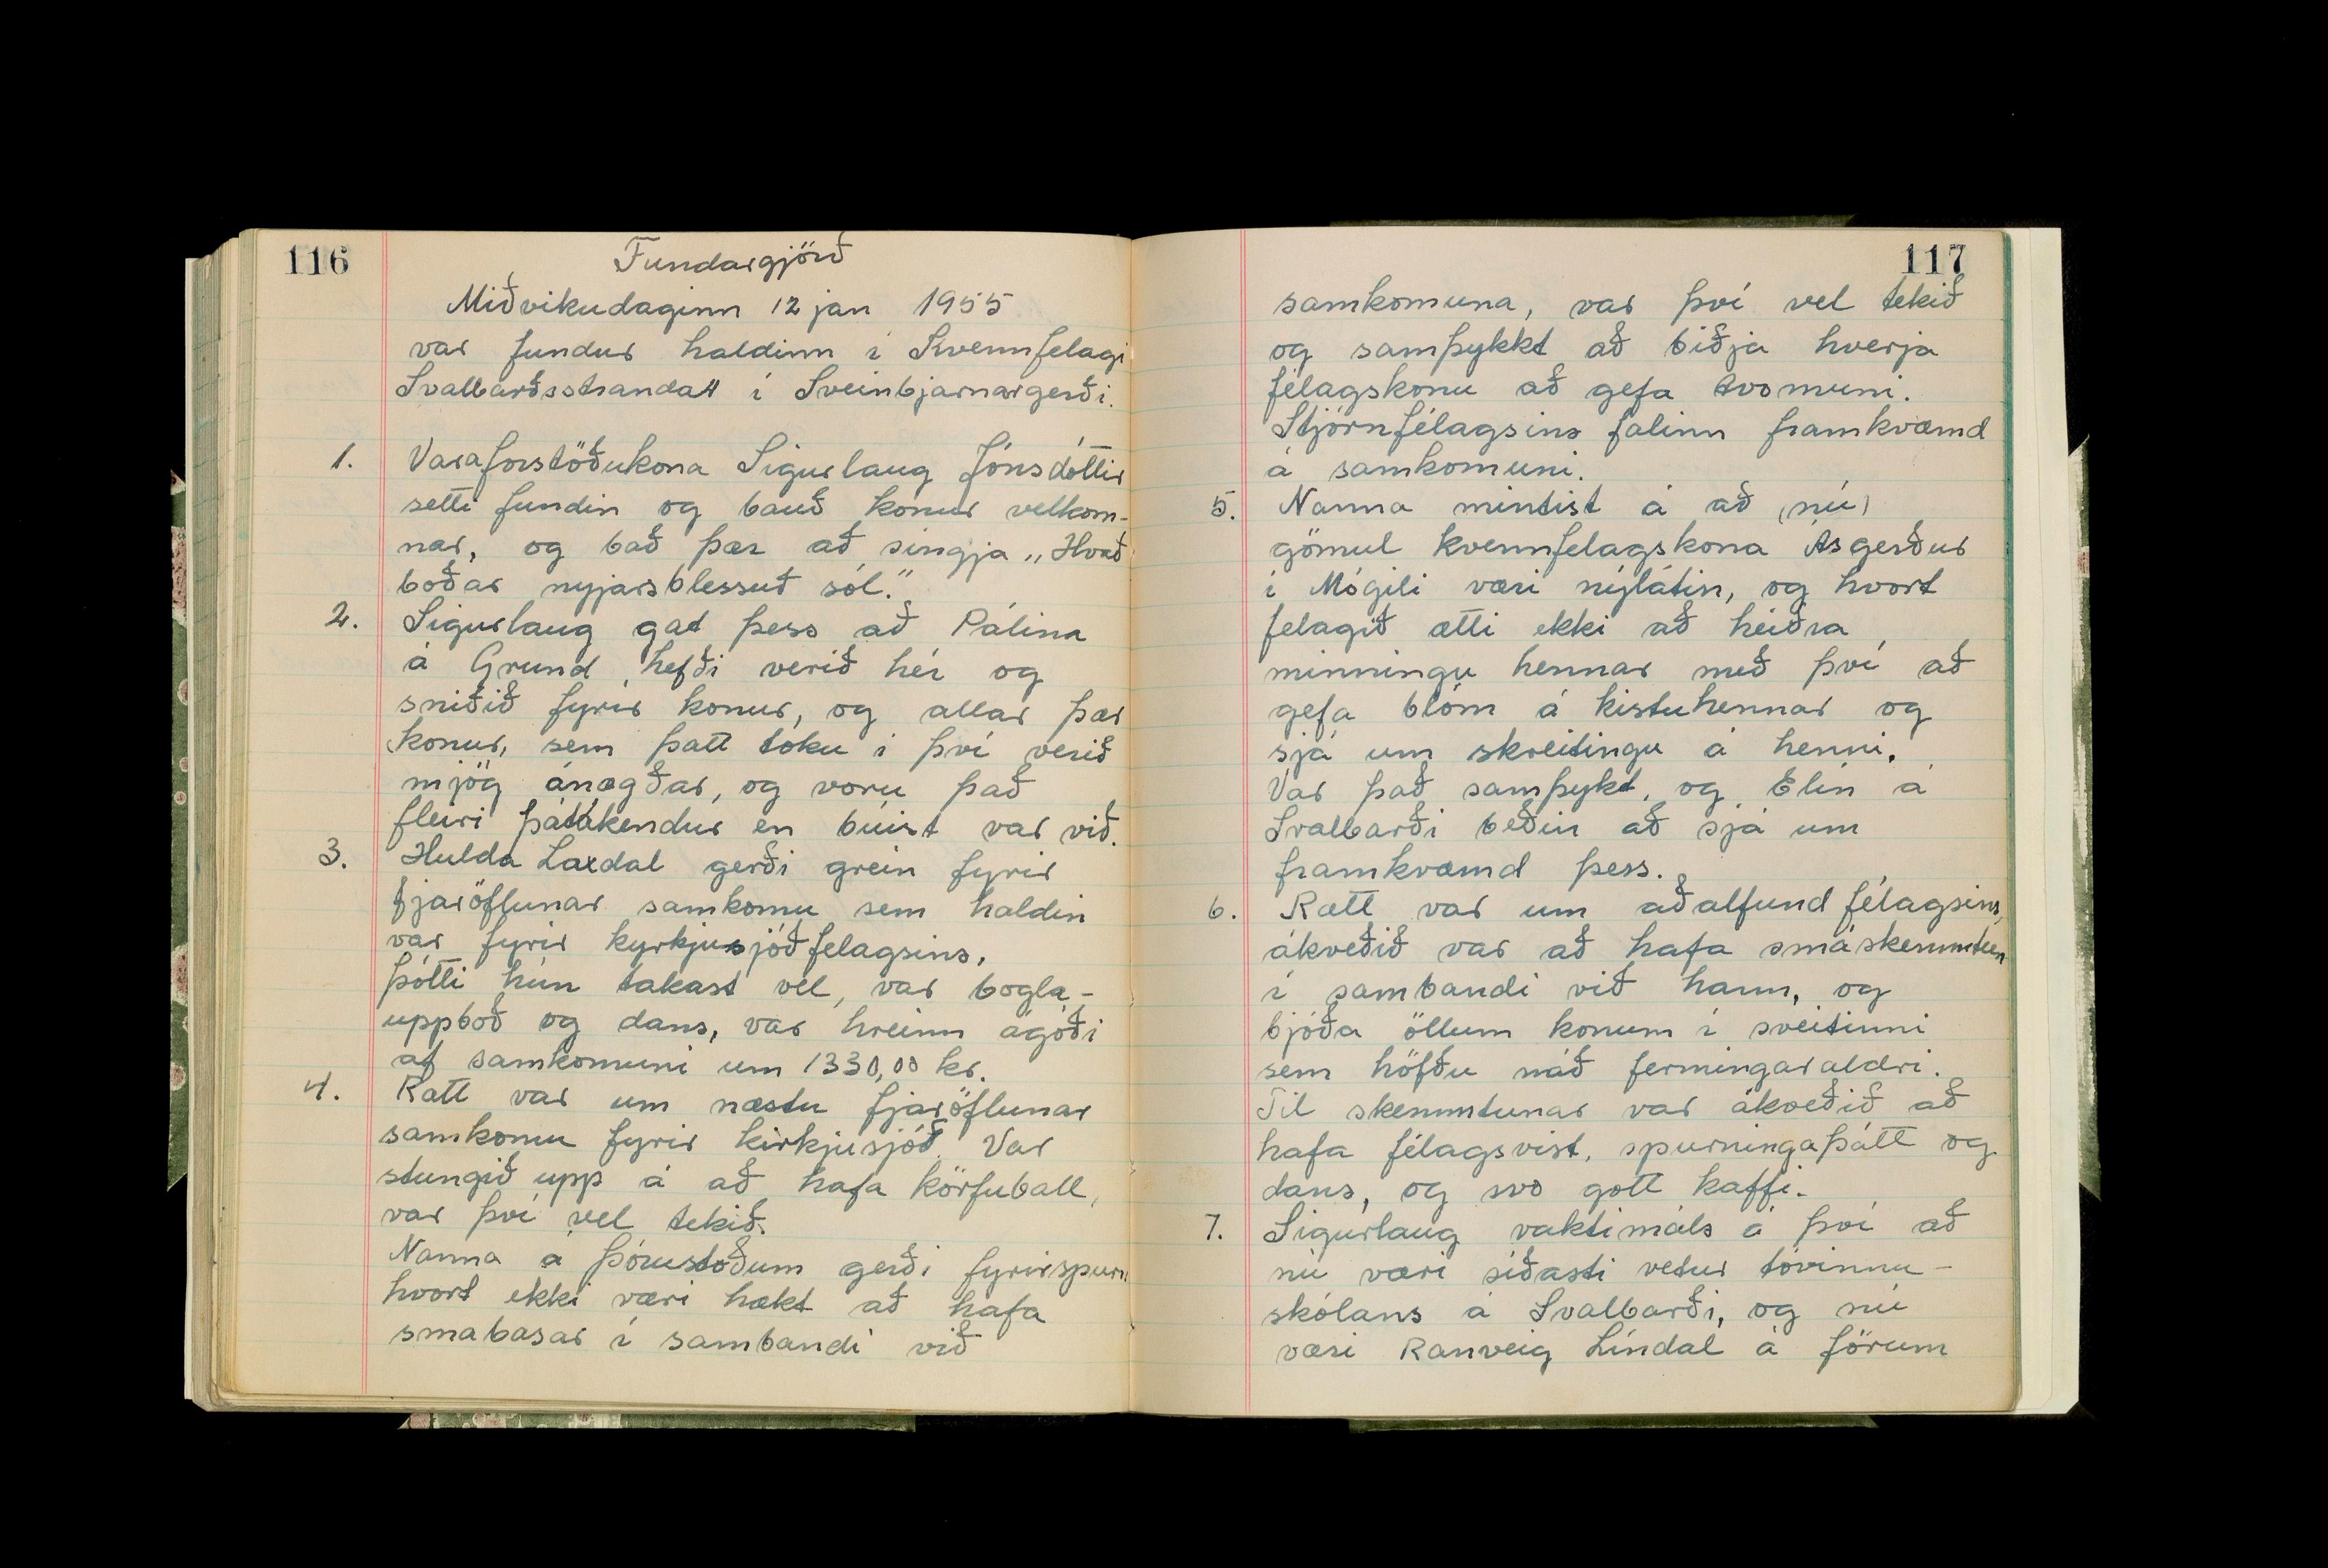 116
Fundargjörð
Miðvikudaginn 12 jan 1955
var fundur haldinn i Kvennfelagi
Svalbarðsstranda" í Sveinbjarnargerði.
1. Varaforstöðukona Sigurlaug Jónsdóttir
setti fundin og bauð konur velkom-
nar, og bað þær að singja „Hvað
boðar nyjarsblessuð sól."
2. Sigurlaug gat þess að Pálina
á Grund hefði verið hér og
sniðið fyrir konur, og allar þær
konur, sem þatt tóku i því verið
mjög ánægðar, og voru það
fleiri þátakendur en búist var við.
3. Hulda Laxdal gerði grein fyrir
fjaröflunar samkomu sem haldin
var fyrir kyrkjusjóð felagsins.
Þótti hún takast vel, var bogla-
uppboð og dans, var hreinn ágóði
af samkomuni um 1330,00 kr.
4. Rætt var um næstu fjaröflunar
samkomu fyrir kirkjusjóð. Var
stungið upp á að hafa körfuball,
var því vel tekið.
Nanna á Þórustoðum gerði fyrirspurn
hvort ekki væri hækt að hafa
smabasar í sambandi við
117
samkomuna, var því vel tekið
og samþykkt að biðja hverja
félagskonu að gefa tvo muni.
Stjórn félagsins falinn framkvæmd
á samkomuni.
5. Nanna mintist á að (nú)
gömul kvennfelagskona Ásgerður
í Mógili væri nýlátin, og hvort
felagið ætti ekki að heiðra
minningu hennar með því að
gefa blóm á kistuhennar og
sjá um skreitingu á henni.
Var það samþykt, og Elín á
Svalbarði beðin að sjá um
framkvæmd þess.
6. Rætt var um aðalfund félagsins,
ákveðið var að hafa smáskemmtun
í sambandi við hann, og
bjóða öllum konum í sveitinni
sem höfðu náð fermingaraldri.
Til skemmtunar var ákveðið að
hafa félagsvist, spurningaþátt og
dans, og svo gott kaffi.
7. Sigurlaug vaktimáls á því að
nú væri síðasti vetur tóvinnu-
skólans á Svalbarði, og nú
væri Ranveig Líndal á förum